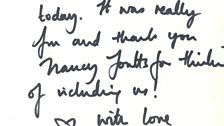 today. It was really
fun and thank you
Nancy for thinkin
of including us!
with love